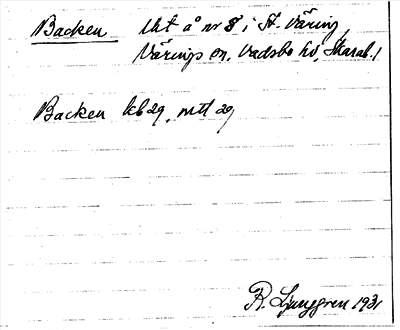 Backen Utt å nr 8 i St. Väring,
Värings sn, Vadsbo hd, Skarab. l
Backen kb 29, mtl 29
R. Ljunggren 1931